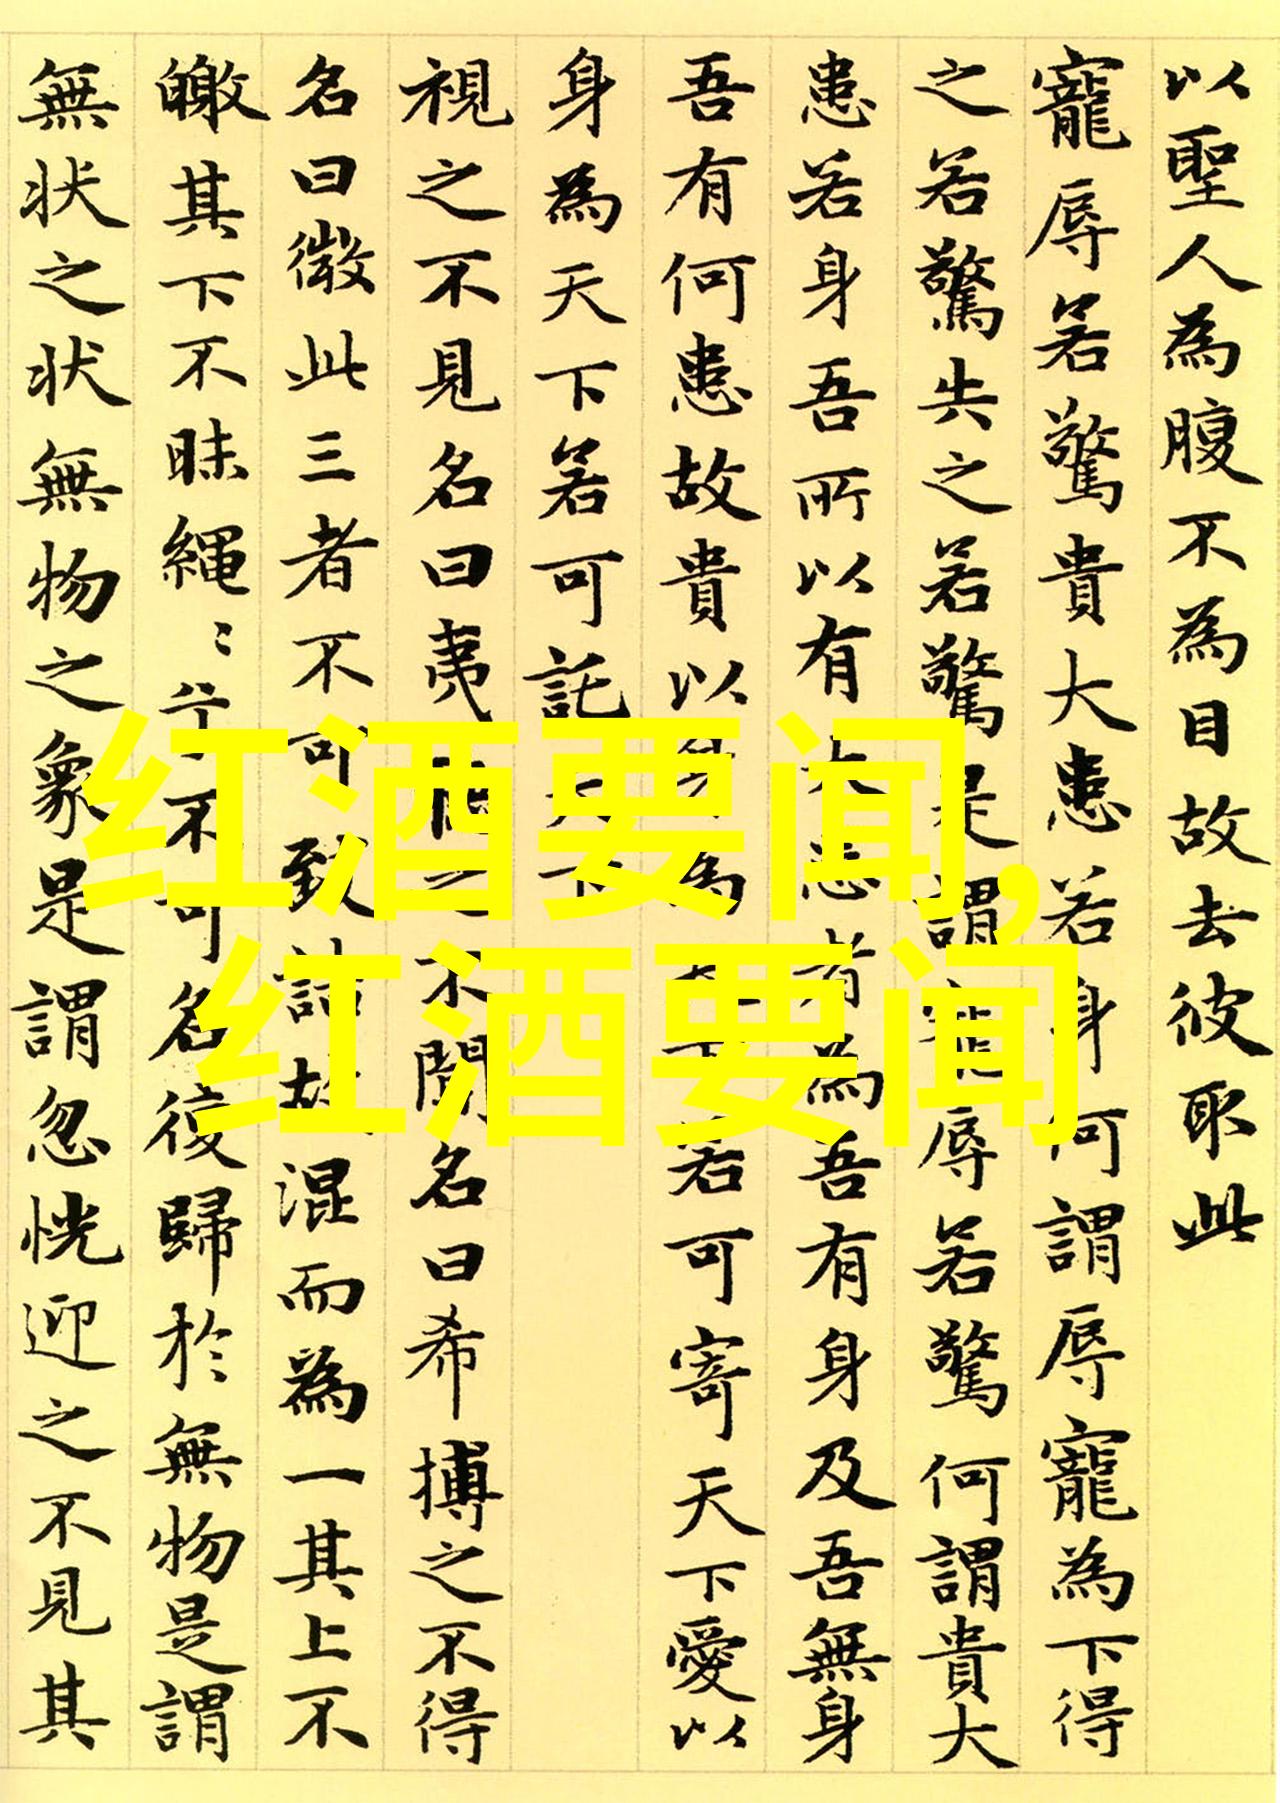 以聖人為腹不為目故去彼取此
寵辱若驚貴大患若身何謂辱寵為下得
之若驚失之若驚是謂寵辱若驚何謂貴大
患若身吾所以有大患者為吾有身及吾無身
吾有何患故貴以身為天下若可寄天下愛以
身為天下若可託天下
視之不見名曰夷聽之不聞名曰希搏之不得
名曰微此三者不可致詰故混而為一其上不
皦其下不昧繩〻兮不可名復歸於無物是謂
無状之状無物之象是謂忽恍迎之不見其
红酒要闻,
红酒要闻